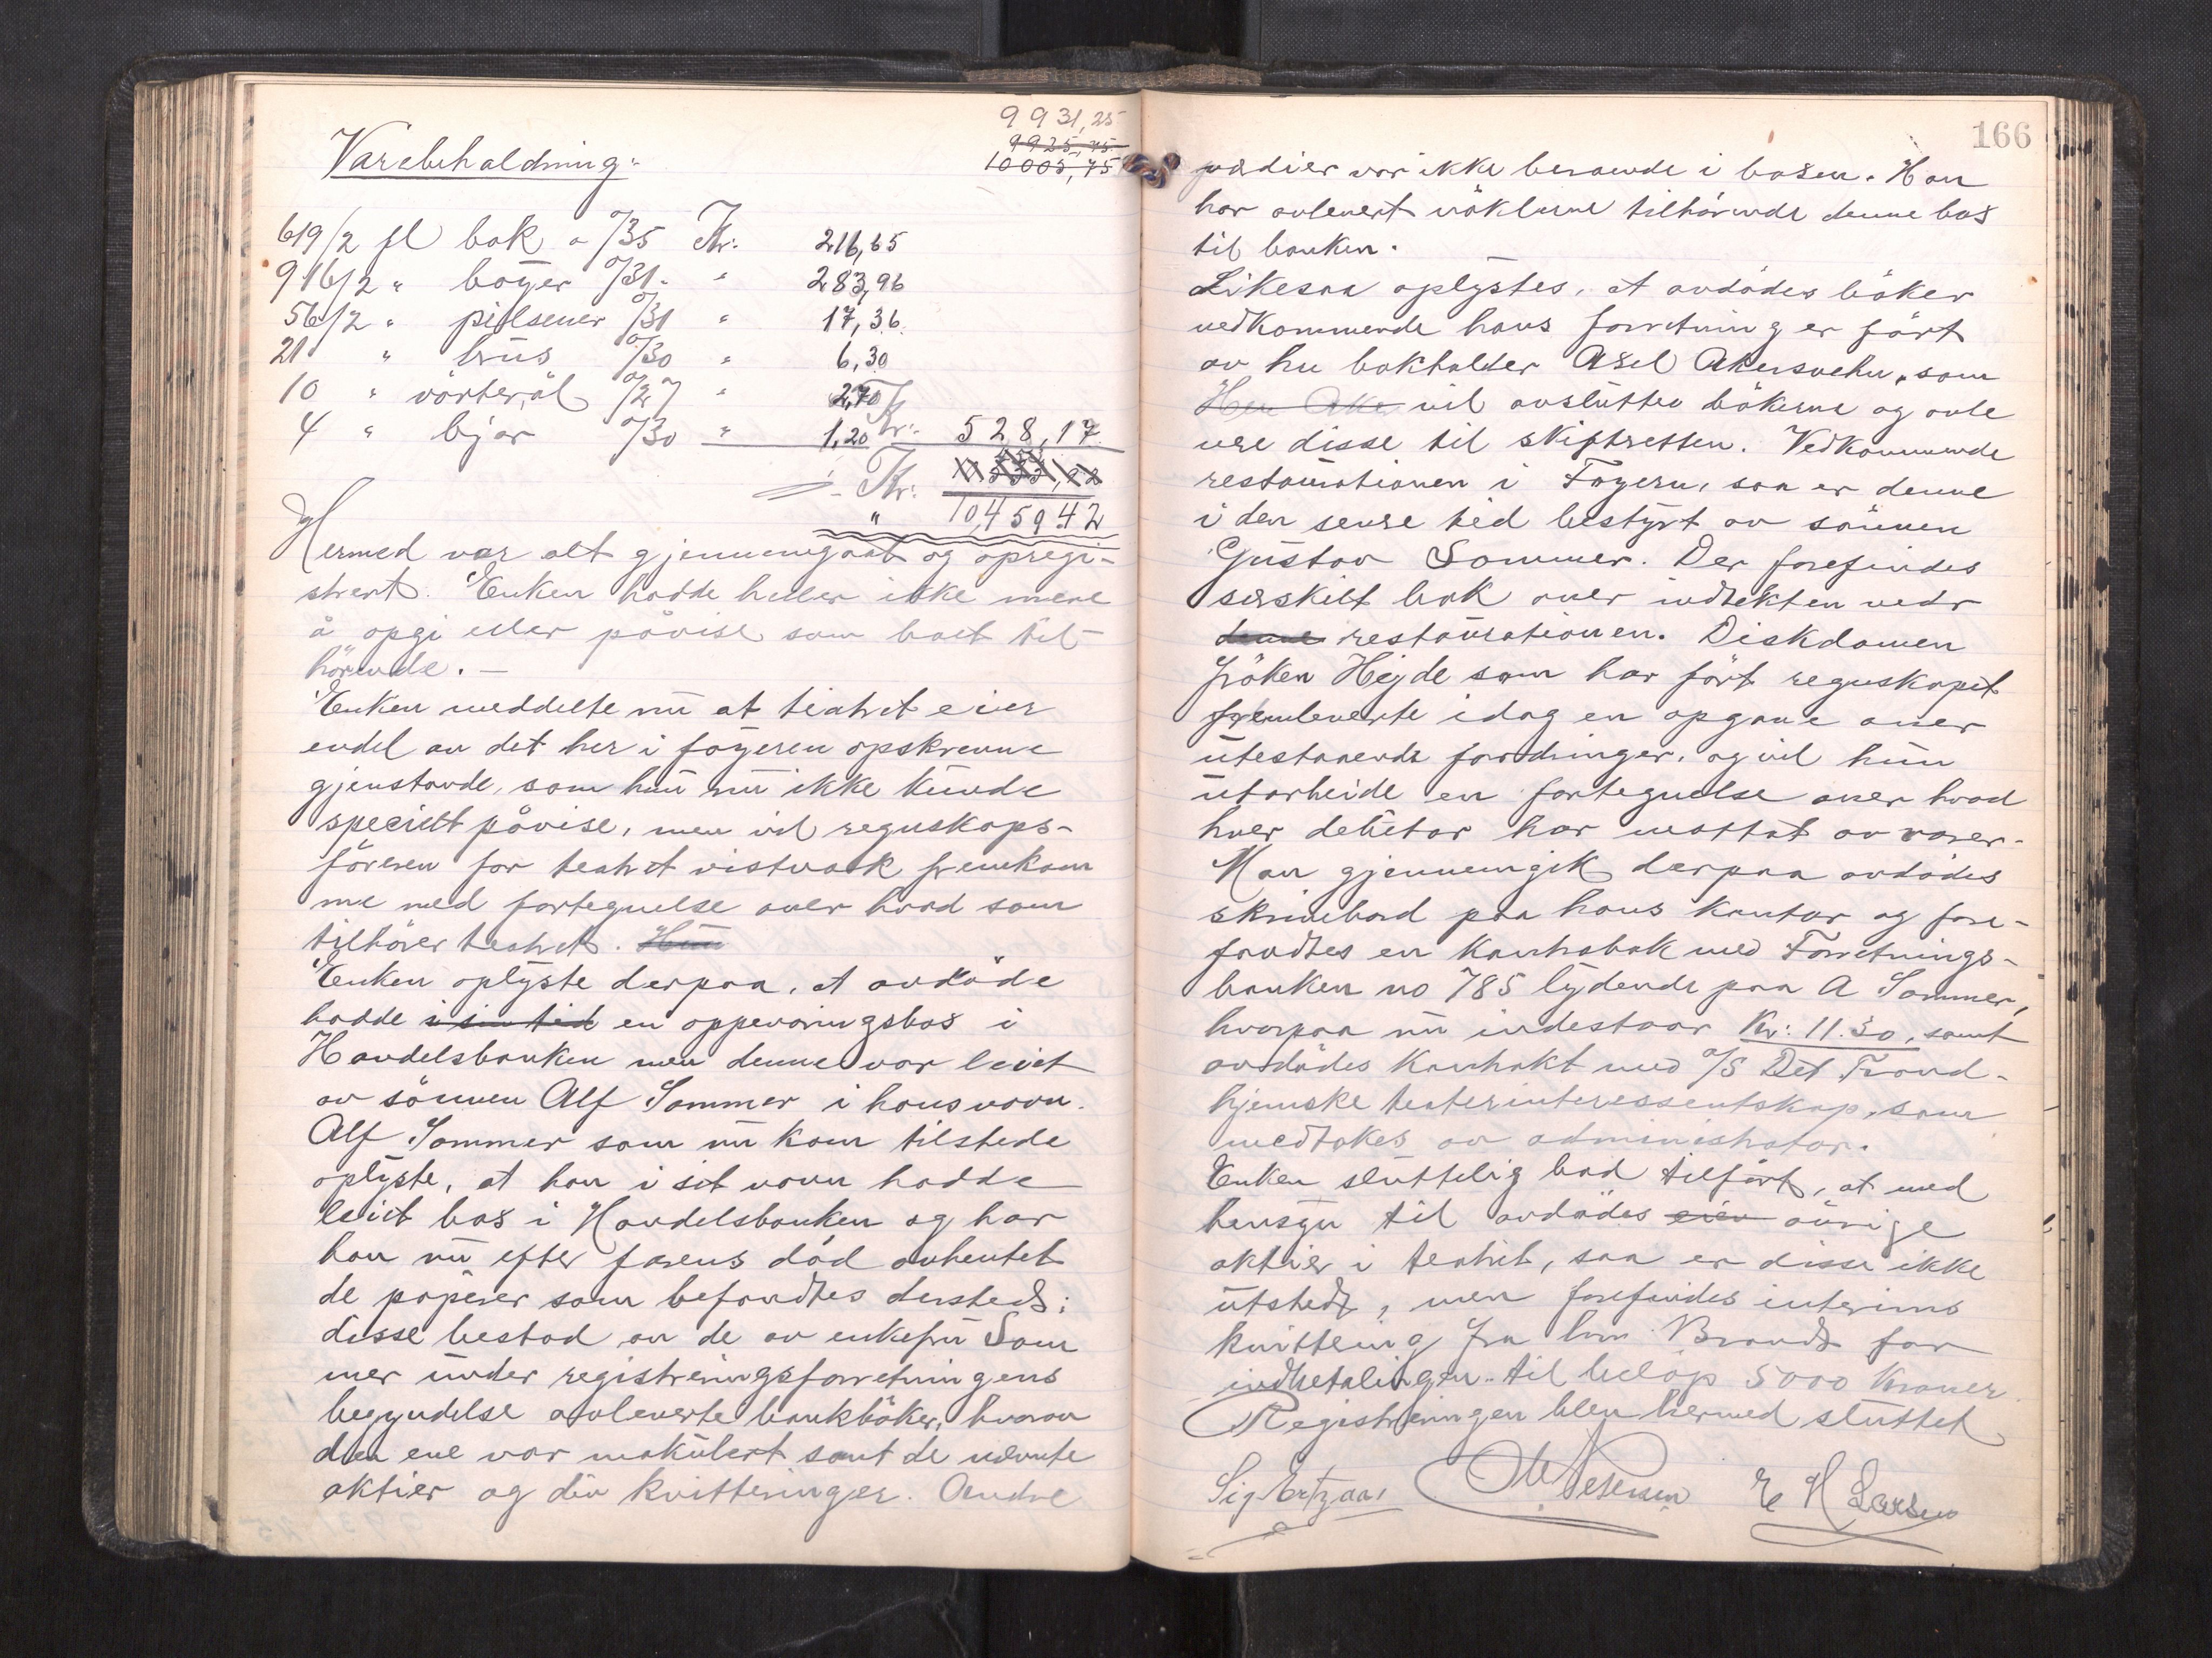 9931,25
9925,75
10005,75
Varebeholdning:
619/2 fl bok a o/35 Kr: 216,65
916/2 " bayer o/31 " 283,96
56/2 " pilsener o/31 " 17,36
21 " brus o/30 " 6,30
10 " vörteröl o/27 " 2,70
4 " bjor o/30 " 1,20 Kr: 528,17
Kr:
" 10459.42
Hermed var alt gjennemgaat og opregi-
strert. Enken hadde heller ikke mere
å opgi eller påvise som boet til-
hörende. —
Enken meddelte nu at teatret eier
endel av det her i foyeren opskrevne
gjenstande, som hun nu ikke kunde
specielt påvise, men vil regnskaps-
föreren for teatret vistnok fremkom
me med fortegnelse over hvad som
tilhörer teatret. Hun
Enken oplyste derpaa, at avdöde
hadde i sin tid en oppevaringsbox i
Handelsbanken men denne var leiet
av sönnen Alf Sommer i hans navn.
Alf Sommer som nu kom tilstede
oplyste, at han i sit navn hadde
leiet box i Handelsbanken og har
han nu efter farens död avhentet
de papirer som befandtes dersteds;
disse bestod av de av enkefru Som
mer under registreringsforretningens
begyndelse avleverte bankböker, hvorav
den ene var makulert samt de nævnte
aktier og div kvitteringer. Andre
166
værdier var ikke beroende i boxen. Han
har avlevert nöklerne tilhörende denne box
til banken.
Likesaa oplystes, at avdödes böker
vedkommende hans forretning er fört
av hr bokholder Axel Akersvehn, som
Herr Ake vil avslutte bökerne og avle
vere disse til skifteretten. Vedkommende
restaurationen i Foyeren, saa er denne
i den senere tid bestyrt av sönnen
Gustav Sommer. Der forefindes
særskilt bok over indtekten vedr
denne restaurationen. Diskdamen
fröken Hejde som har fört regnskapet
fremleverte idag en opgave over
utestaaende fordringer, og vil hun
utarbeide en fortegnelse over hvad
hver debitor har mottat av varer.
Man gjennemgik derpaa avdödes
skrivebord paa hans kontor og fore-
fandtes en kontrabok med Forretnings-
banken no 785 lydende paa A Sommer,
hvorpaa nu indestaar Kr: 11.30, samt
avdödes kontrakt med A/S Det Trond-
hjemske teaterinteressentskap, som
medtokes av administrator.
Enken sluttelig bad tilfört, at med
hensyn til avdödes eien övrige
aktier i teatret, saa er disse ikke
utstedt, men forefindes interims
kvittering fra hrr. Brandt for
indbetalingen til belöp 5000 kroner
Registreringen blev hermed sluttet
Petersen E H Larsen